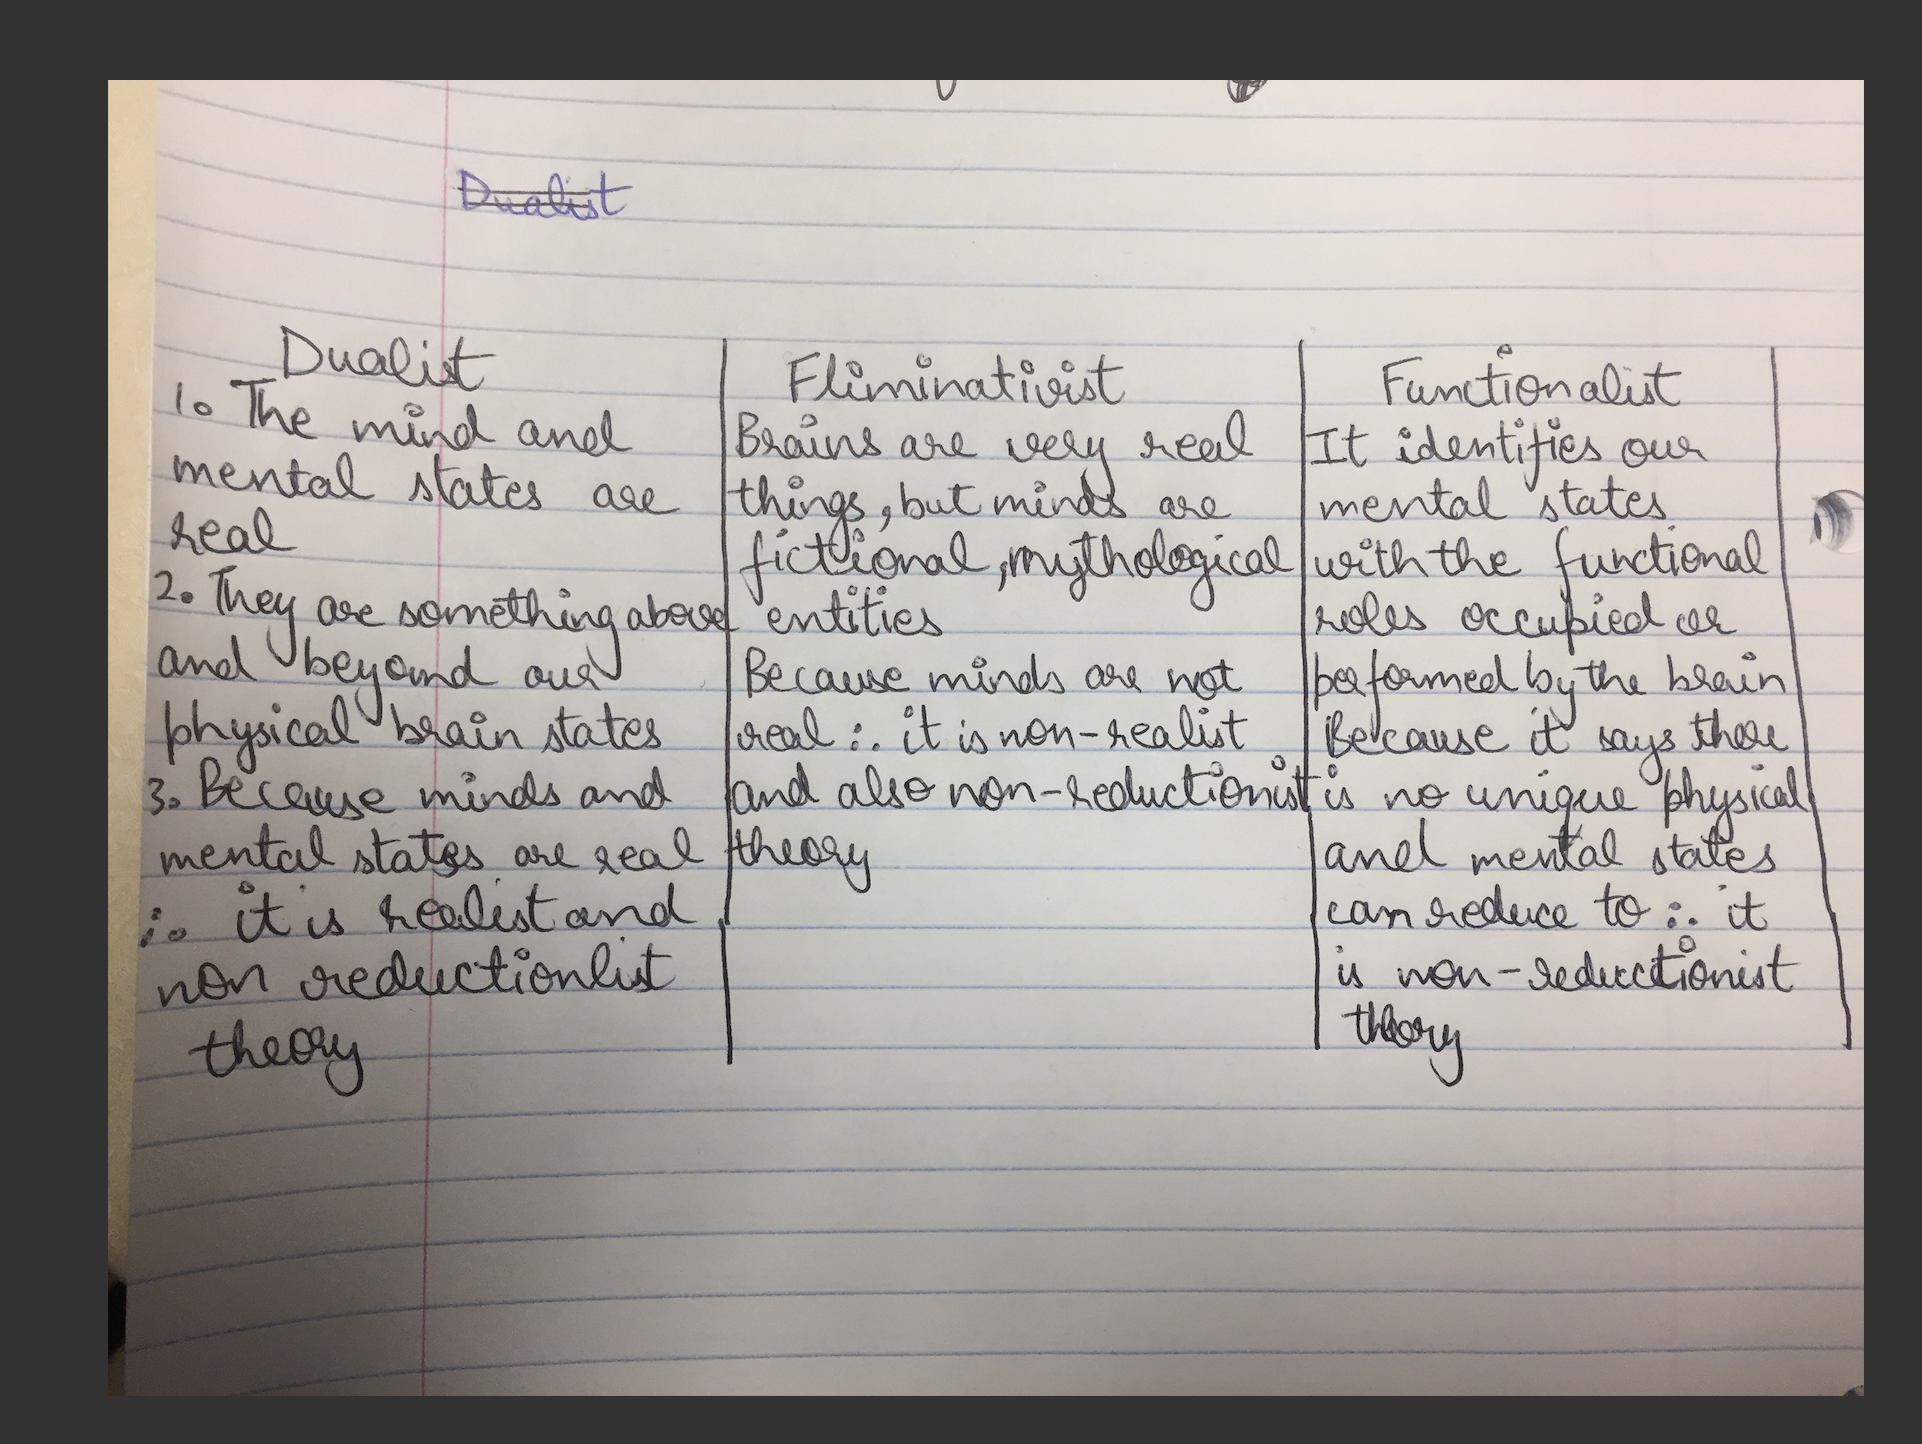 Dualist
Dualist
1. The mind and
mental states are
real
2. They are something above
and beyond our
physical brain states
3. Because minds and
mental states are real
∴ it is realist and
non reductionlist
theory
Eliminativist
Brains are very real
things, but minds are
fictional, mythological
entities
Because minds are not
real ∴ it is non-realist
and also non-reductionist
theory
Functionalist
It identifies our
mental states
with the functional
roles occupied or
performed by the brain
Because it says there
is no unique physical
and mental states
can reduce to ∴ it
is non-reductionist
theory